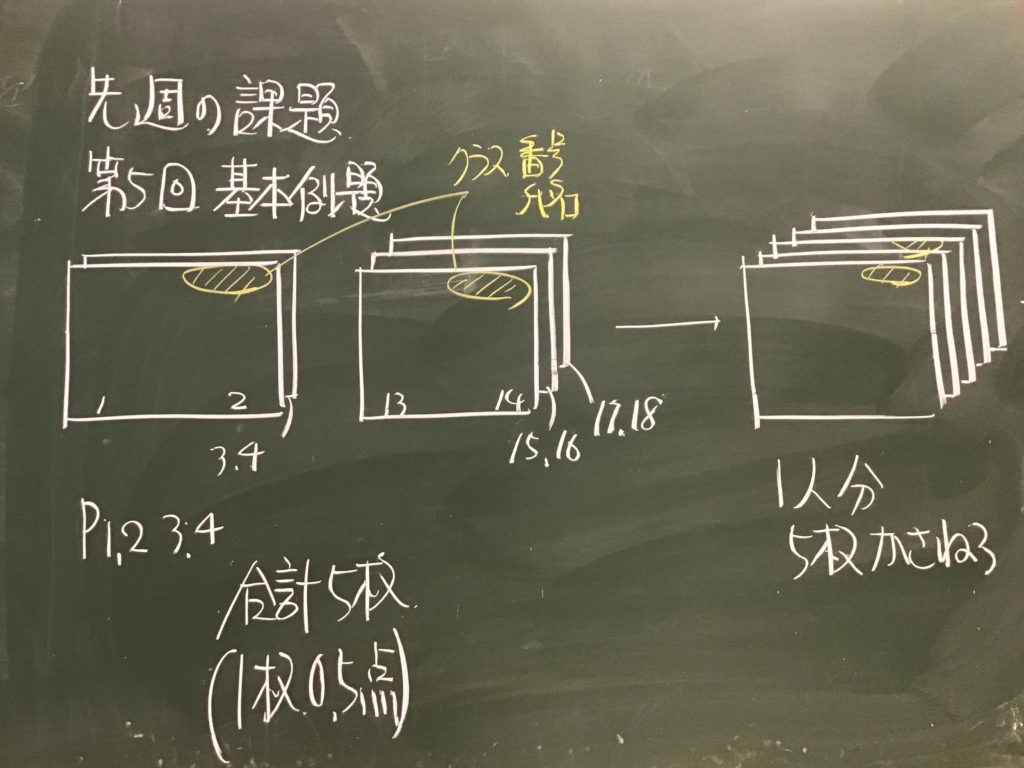 先週の課題
第5回 基本例題
クラス 番号
氏名
1 2
3.4
13 14
15.16
17.18
P1,2 3.4
合計5枚
(1枚0.5点)
1人分
5枚かさねる